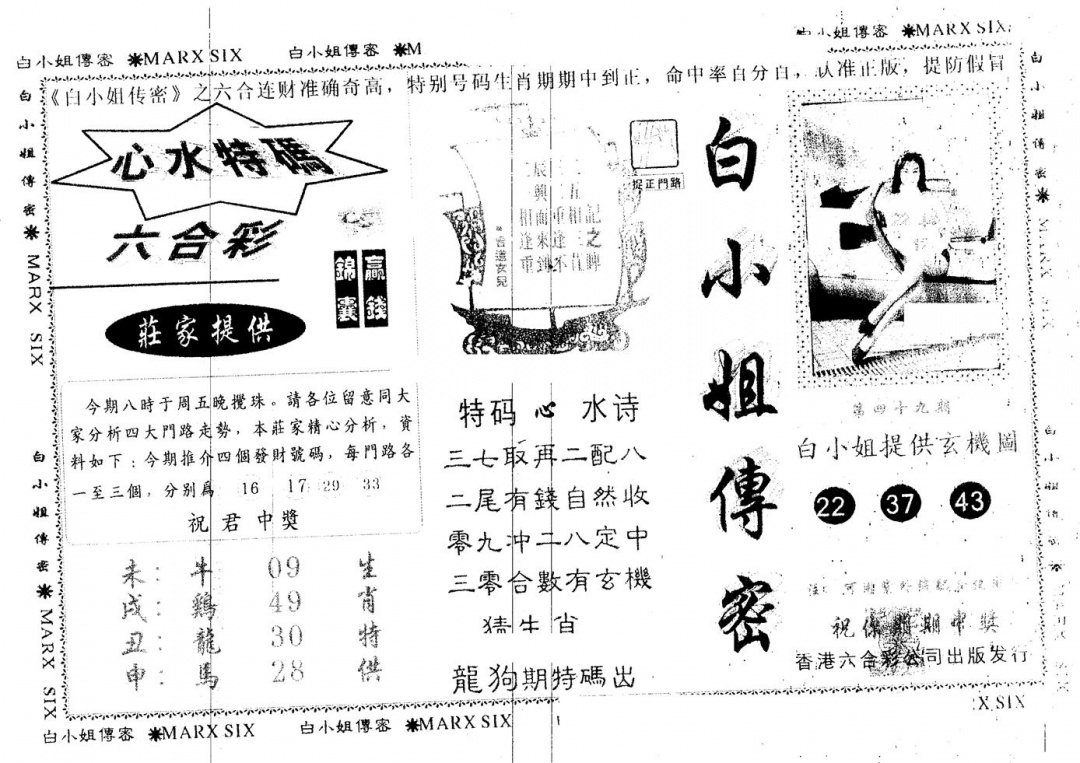 白小姐傳密 ✷MARX SIX 白小姐傳密 ✷M
小姐傳密 ✷MARX SIX
《白小姐传密》之六合连财准确奇高，特别号码生肖期期中到正，命中率百分百，认准正版，提防假冒
白小姐傳密✷ MARX SIX
白小姐傳密✷ MARX SIX
心水特碼
六合彩
贏錢
錦囊
莊家提供
今期八時于周五晚攪珠。請各位留意同大
家分析四大門路走勢，本莊家精心分析，資
料如下：今期推介四個發財號碼，每門路各
一至三個，分別爲 16 17 29 33
祝君中獎
未：牛 09 生
戌：鷄 49 肖
丑：龍 30 特
申：馬 28 供
捉正門路
香港女兒
特码心水诗
三七取再二配八
二尾有錢自然收
零九冲二八定中
三零合數有玄機
猜生肖
龍狗期特碼出
白小姐傳密
第四十九期
白小姐提供玄機圖
22 37 43
期中獎
香港六合彩公司出版发行
白小姐傳密✷ MARX
白小姐傳密 ✷MARX SIX 白小姐傳密 ✷MARX SIX
X SIX